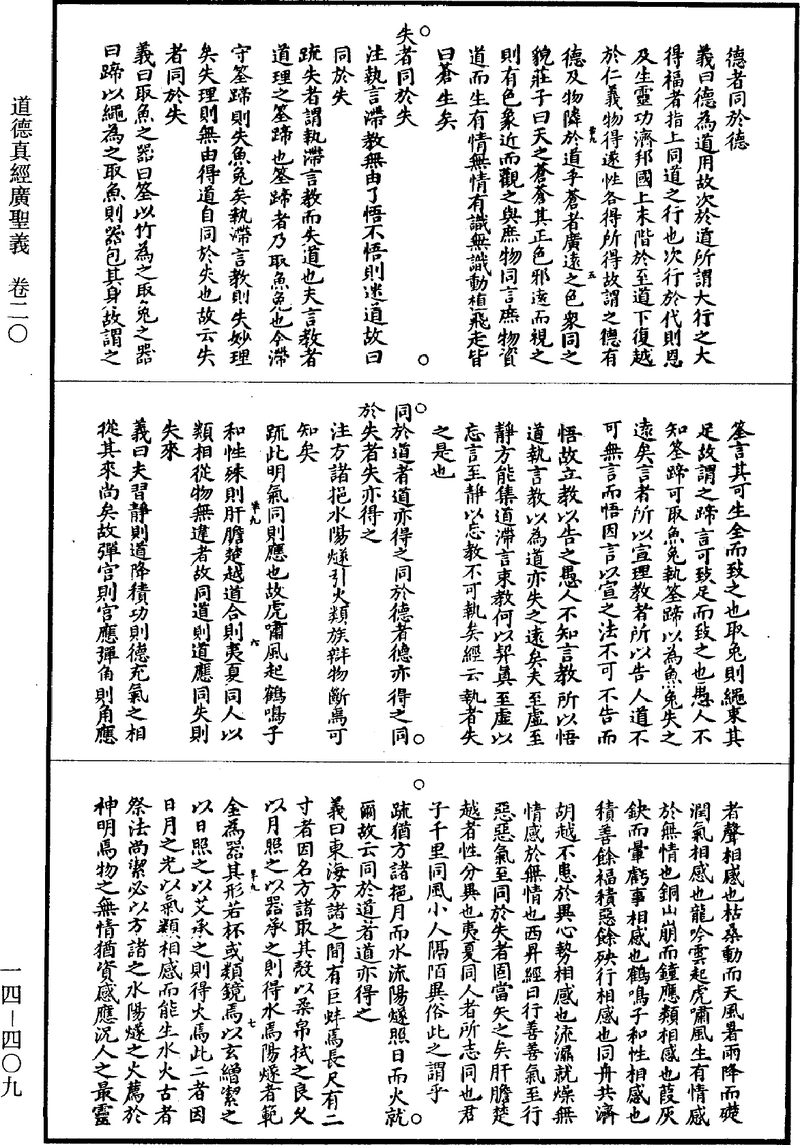 德者同於德
義曰德為道用故次於道所謂大行之大
得福者指上同道之行也次行於代則恩
及生靈功濟邦國上未階於至道下復越
於仁義物得遂性各得所得故謂之德有
德及物隣於道乎蒼者廣遠之色衆同之
貌莊子曰天之蒼蒼其正色邪遠而視之
則有色象近而觀之與庶物同言庶物資
道而生有情無情有識無識動植飛走皆
曰蒼生矣
失者同於失
注執言滯教無由了悟不悟則迷道故曰
同於失
疏失者謂執滯言教而失道也夫言教者
道理之筌蹄也筌蹄者乃取魚兔也今滯
守筌蹄則失魚兔矣執滯言教則失妙理
矣失理則無由得道自同於失也故云失
者同於失
義曰取魚之器曰筌以竹為之取兔之器
曰蹄以繩為之取魚則器包其身故謂之
筌言其可生全而致之也取兔則繩束其
足故謂之蹄言可致足而致之也愚人不
知筌蹄可取魚兔執筌蹄以為魚兔失之
遠矣言者所以宣理教者所以告人道不
可無言而悟因言以宣之法不可不告而
悟故立教以告之愚人不知言教所以悟
道執言教以為道亦失之遠矣夫至虛至
靜方能集道滯言束教何以契真至虛以
忘言至靜以忘教不可執矣經云執者失
之是也
同於道者道亦得之同於德者德亦得之同
於失者失亦得之
注方諸挹水陽燧引火類族辯物斷焉可
知矣
疏此明氣同則應也故虎嘯風起鶴鳴子
和性殊則肝膽楚越道合則夷夏同人以
類相從物無違者故同道則道應同失則
失來
義曰夫習靜則道降積功則德充氣之相
從其來尚矣故彈宮則宮應彈角則角應
者聲相感也枯桑動而天風暑雨降而礎
潤氣相感也龍吟雲起虎嘯風生有情感
於無情也銅山崩而鐘應類相感也葭灰
鈌而暈虧事相感也鶴鳴子和性相感也
積善餘福積惡餘殃行相感也同舟共濟
胡越不患於異心勢相感也流濕就燥無
情感於無情也西昇經曰行善善氣至行
惡惡氣至同於失者固當失之矣肝膽楚
越者性分異也夷夏同人者所志同也君
子千里同風小人隔陌異俗此之謂乎
疏猶方諸挹月而水流陽燧照日而火就
爾故云同於道者道亦得之
義曰東海方諸之間有巨蚌焉長尺有二
寸者因名方諸取其殼以柔帛拭之良久
以月照之以器承之則得水焉陽燧者範
金為器其形若杯或類鏡焉以玄繒潔之
以日照之以艾承之則得火焉此二者因
日月之光以氣類相感而能生水火古者
祭法尚潔必以方諸之水陽燧之火薦於
神明焉物之無情猶資感應況人之最靈
道德真經廣聖義　卷二〇
一四－四〇九